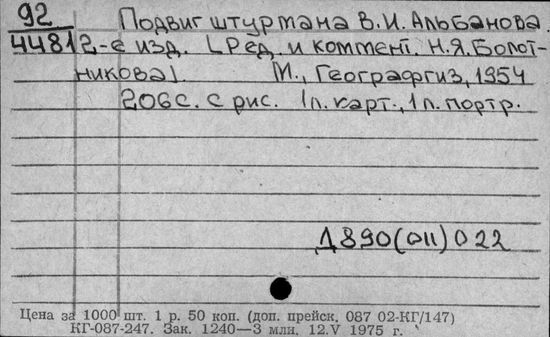 92 Подвиг штурмана В.И. Альбанова.
44812 2-е изд. [Ред. и коммент. Н.Я. Болот-
никова]. М., Географгиз, 1954
206с. с рис. 1л. карт., 1л. портр.
Д890(011)022
Цена за 1000 шт. 1 р. 50 коп. (доп. прейск. 087 02-КГ/147)
КГ-087-247. Зак. 1240—3 млн. 12.V 1975 г.